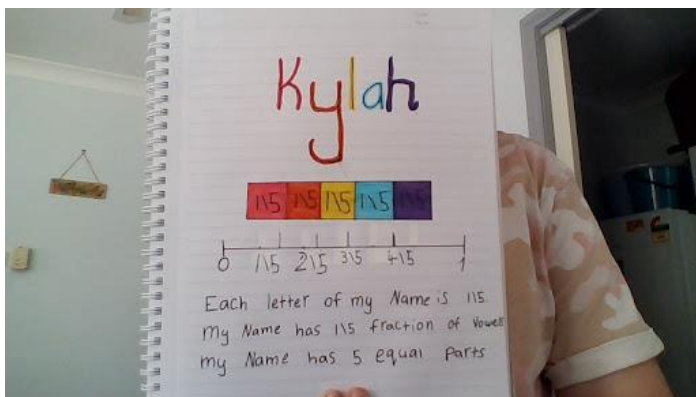 Kylah
1\5 1\5 1\5 1\5 1\5
0 1\5 2\5 3\5 4\5 1
Each letter of my Name is 1\5
My Name has 1\5 fraction of Vowels
my Name has 5 equal parts